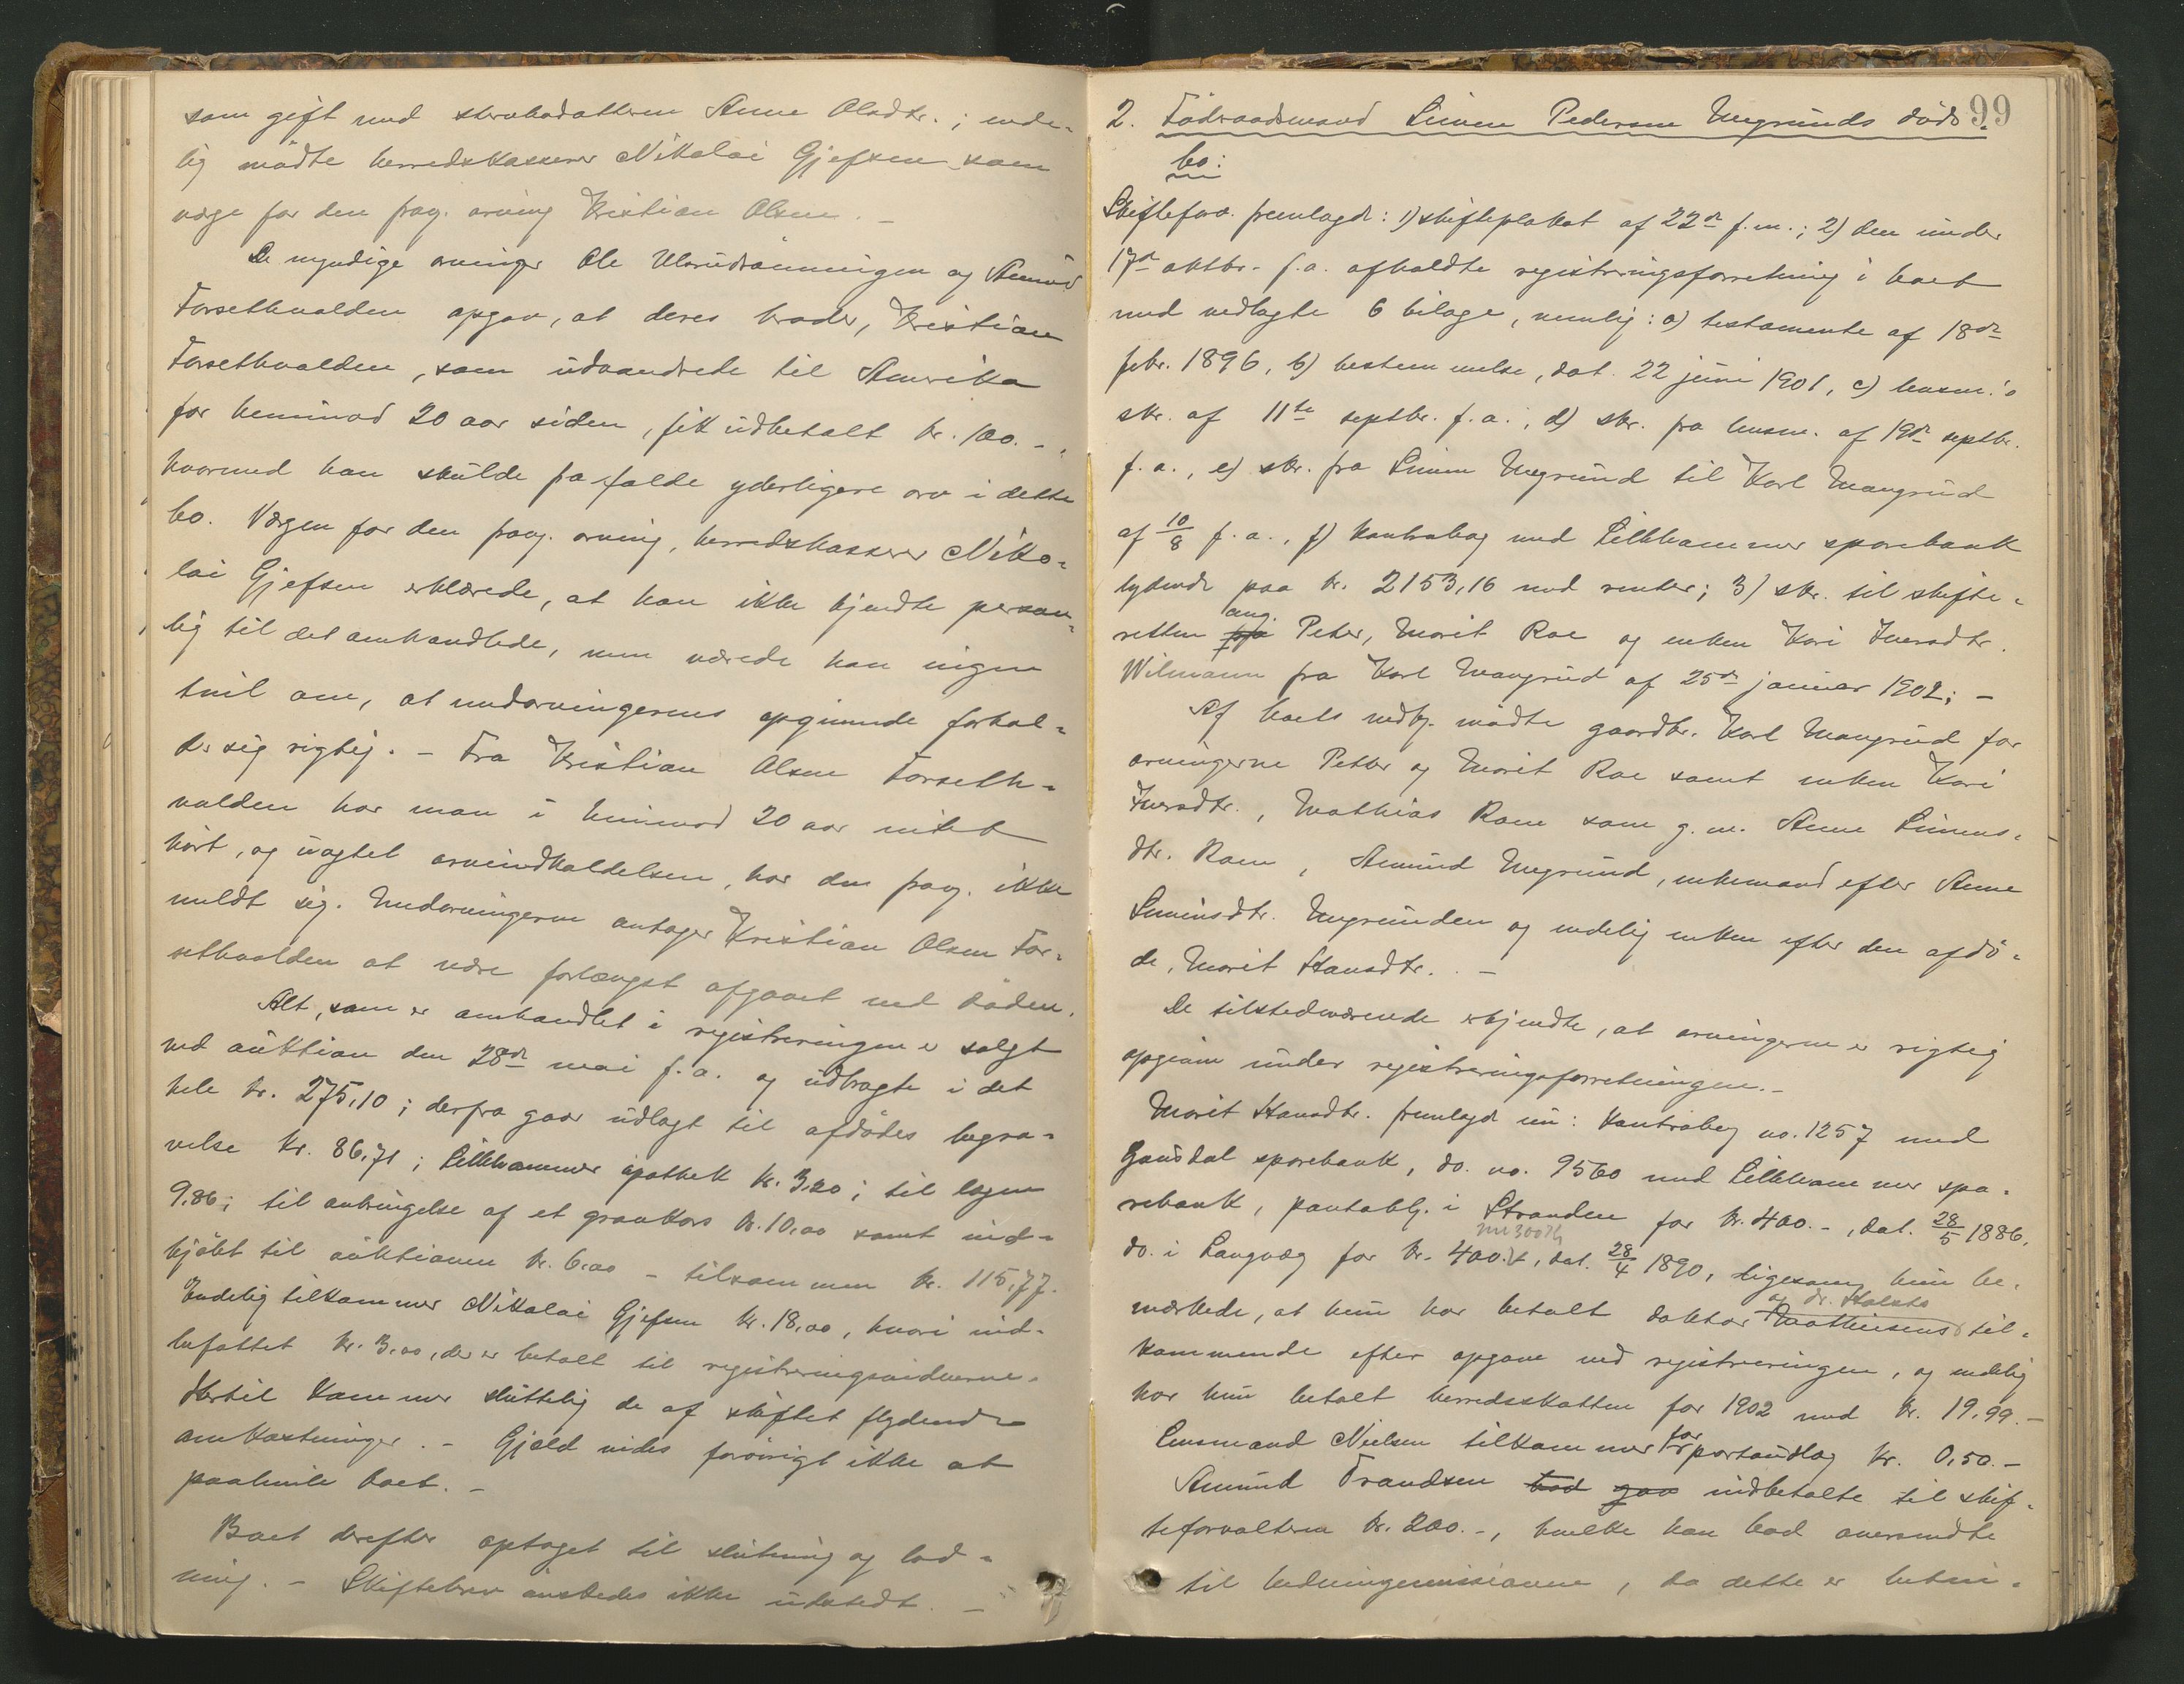 som gift med stervbodatteren Anne Olsdtr.; ende-
lig mødte herredskasserer Nikolai Gjefsen som
verge for den frav. arving Kristian Olsen. –
De myndige arvinger Ole Ulsrudsønningen og Amund
Forsethvalden opgav, at deres broder, Kristian
Forsethvalden, som udvandrede til Amerika
for henimod 20 aar siden, fik udbetalt kr. 100.-,
hvormed han skulde frafalde yderligere arv i dette
bo. Vergen for den frav. arving, herredskasserer Niko-
lai Gjefsen erklærede, at han ikke kjendte person-
lig til det omhandlede, men nærede han ingen
tvil om, at medarvingernes opgivende forhol-
der sig rigtig. – Fra Kristian Olsen Forseth-
valden har man i henimod 20 aar intet
hørt, og uagtet arveindkaldelsen, har den frav. ikke
meldt sig. Medarvingerne antager Kristian Olsen For-
sethvalden at være forlængst afgaaet ved døden.
Alt, som er omhandlet i registreringen er solgt
ved auktion den 28de mai f.a. og udbragte i det
hele kr. 275,10; derfra gaar udlagt til afdødes begra-
velse kr. 86,71; Lillehammer apothek kr. 3,20; til lægen
9,86; til anbringelse af et gravkors kr. 10,00 samt ind-
kjøbt til auktionen kr. 6,00 – tilsammen kr. 115,77.
Endelig tilkommer Nikolai Gjefsen kr. 18,00, hvori ind-
befattet kr. 3,00, der er betalt til registreringsvidnerne.
Hertil kommer sluttelig de af skiftet flydende
omkostninger. – Gjæld vides forøvrigt ikke at
paahvile boet. –
Boet derefter optaget til slutning og lod-
ning. – Skiftebrev ønskedes ikke udstedt. –
99
2. Föderaadsmand Simen Pedersen Megrunds døds-
bo:
Skifteforv. fremlagde: 1) skifteplakat af 22de f.m.; 2) den under
17de oktbr. f.a. afholdte registreringsforretning i boet
med vedlagte 6 bilage, nemlig: a) testamente af 18de
febr. 1896, b) bestemmelse, dat. 22 juni 1901, c) lensm.'s
skr. af 11te septbr. f.a., d) skr. fra lensm. af 19de septbr.
f.a., e) skr. fra Simen Megrund til Karl Mangrud
af 10/8 f.a., f) kontrabog med Lillehammer sparebank
lydende paa kr. 2153,16 med renter; 3) skr. til skifte-
ang.
retten fra Peter, Marit Roe og enken Kari Iversdtr.
Wilmann fra Karl Mangrud af 25de januar 1902; –
Af boets vedk. mødte gaardbr. Karl Mangrud for
arvingerne Petter og Marit Roe samt enken Kari
Iversdtr., Mathias Roen som g.m. Anne Simens-
dtr. Roen, Amund Megrund, enkemand efter Anne
Simensdtr. Megrunden og endelig enken efter den afdø-
de, Marit Hansdtr. . –
De tilstedeværende erkjendte, at arvingerne er rigtig
opgivne under registreringsforretningen. –
Marit Hansdtr. fremlagde nu: kontrabog no. 1257 med
Gausdal sparebank, do. no. 9560 med Lillehammer spa-
rebank, pantobl. i Stranden for kr. 400.-, dat. 28/5 1886,
nu 300 kr.
do. i Langvæg for kr. 400.-, dat. 28/4 1890, ligesom hun be-
og dr. Holsts
mærkede, at hun har betalt doktor Mathiesens til-
kommende efter opgave ved registreringen, og endelig
har hun betalt herredsskatten for 1902 med kr. 19,99. –
for
Lensmand Nielsen tilkommer portoudlæg kr. 0,50. –
Amund Frandsen bad gav indbetalte til skif-
teforvalteren kr. 200.-, hvilke han bad oversendte
til hedningemissionen, da dette er betin-